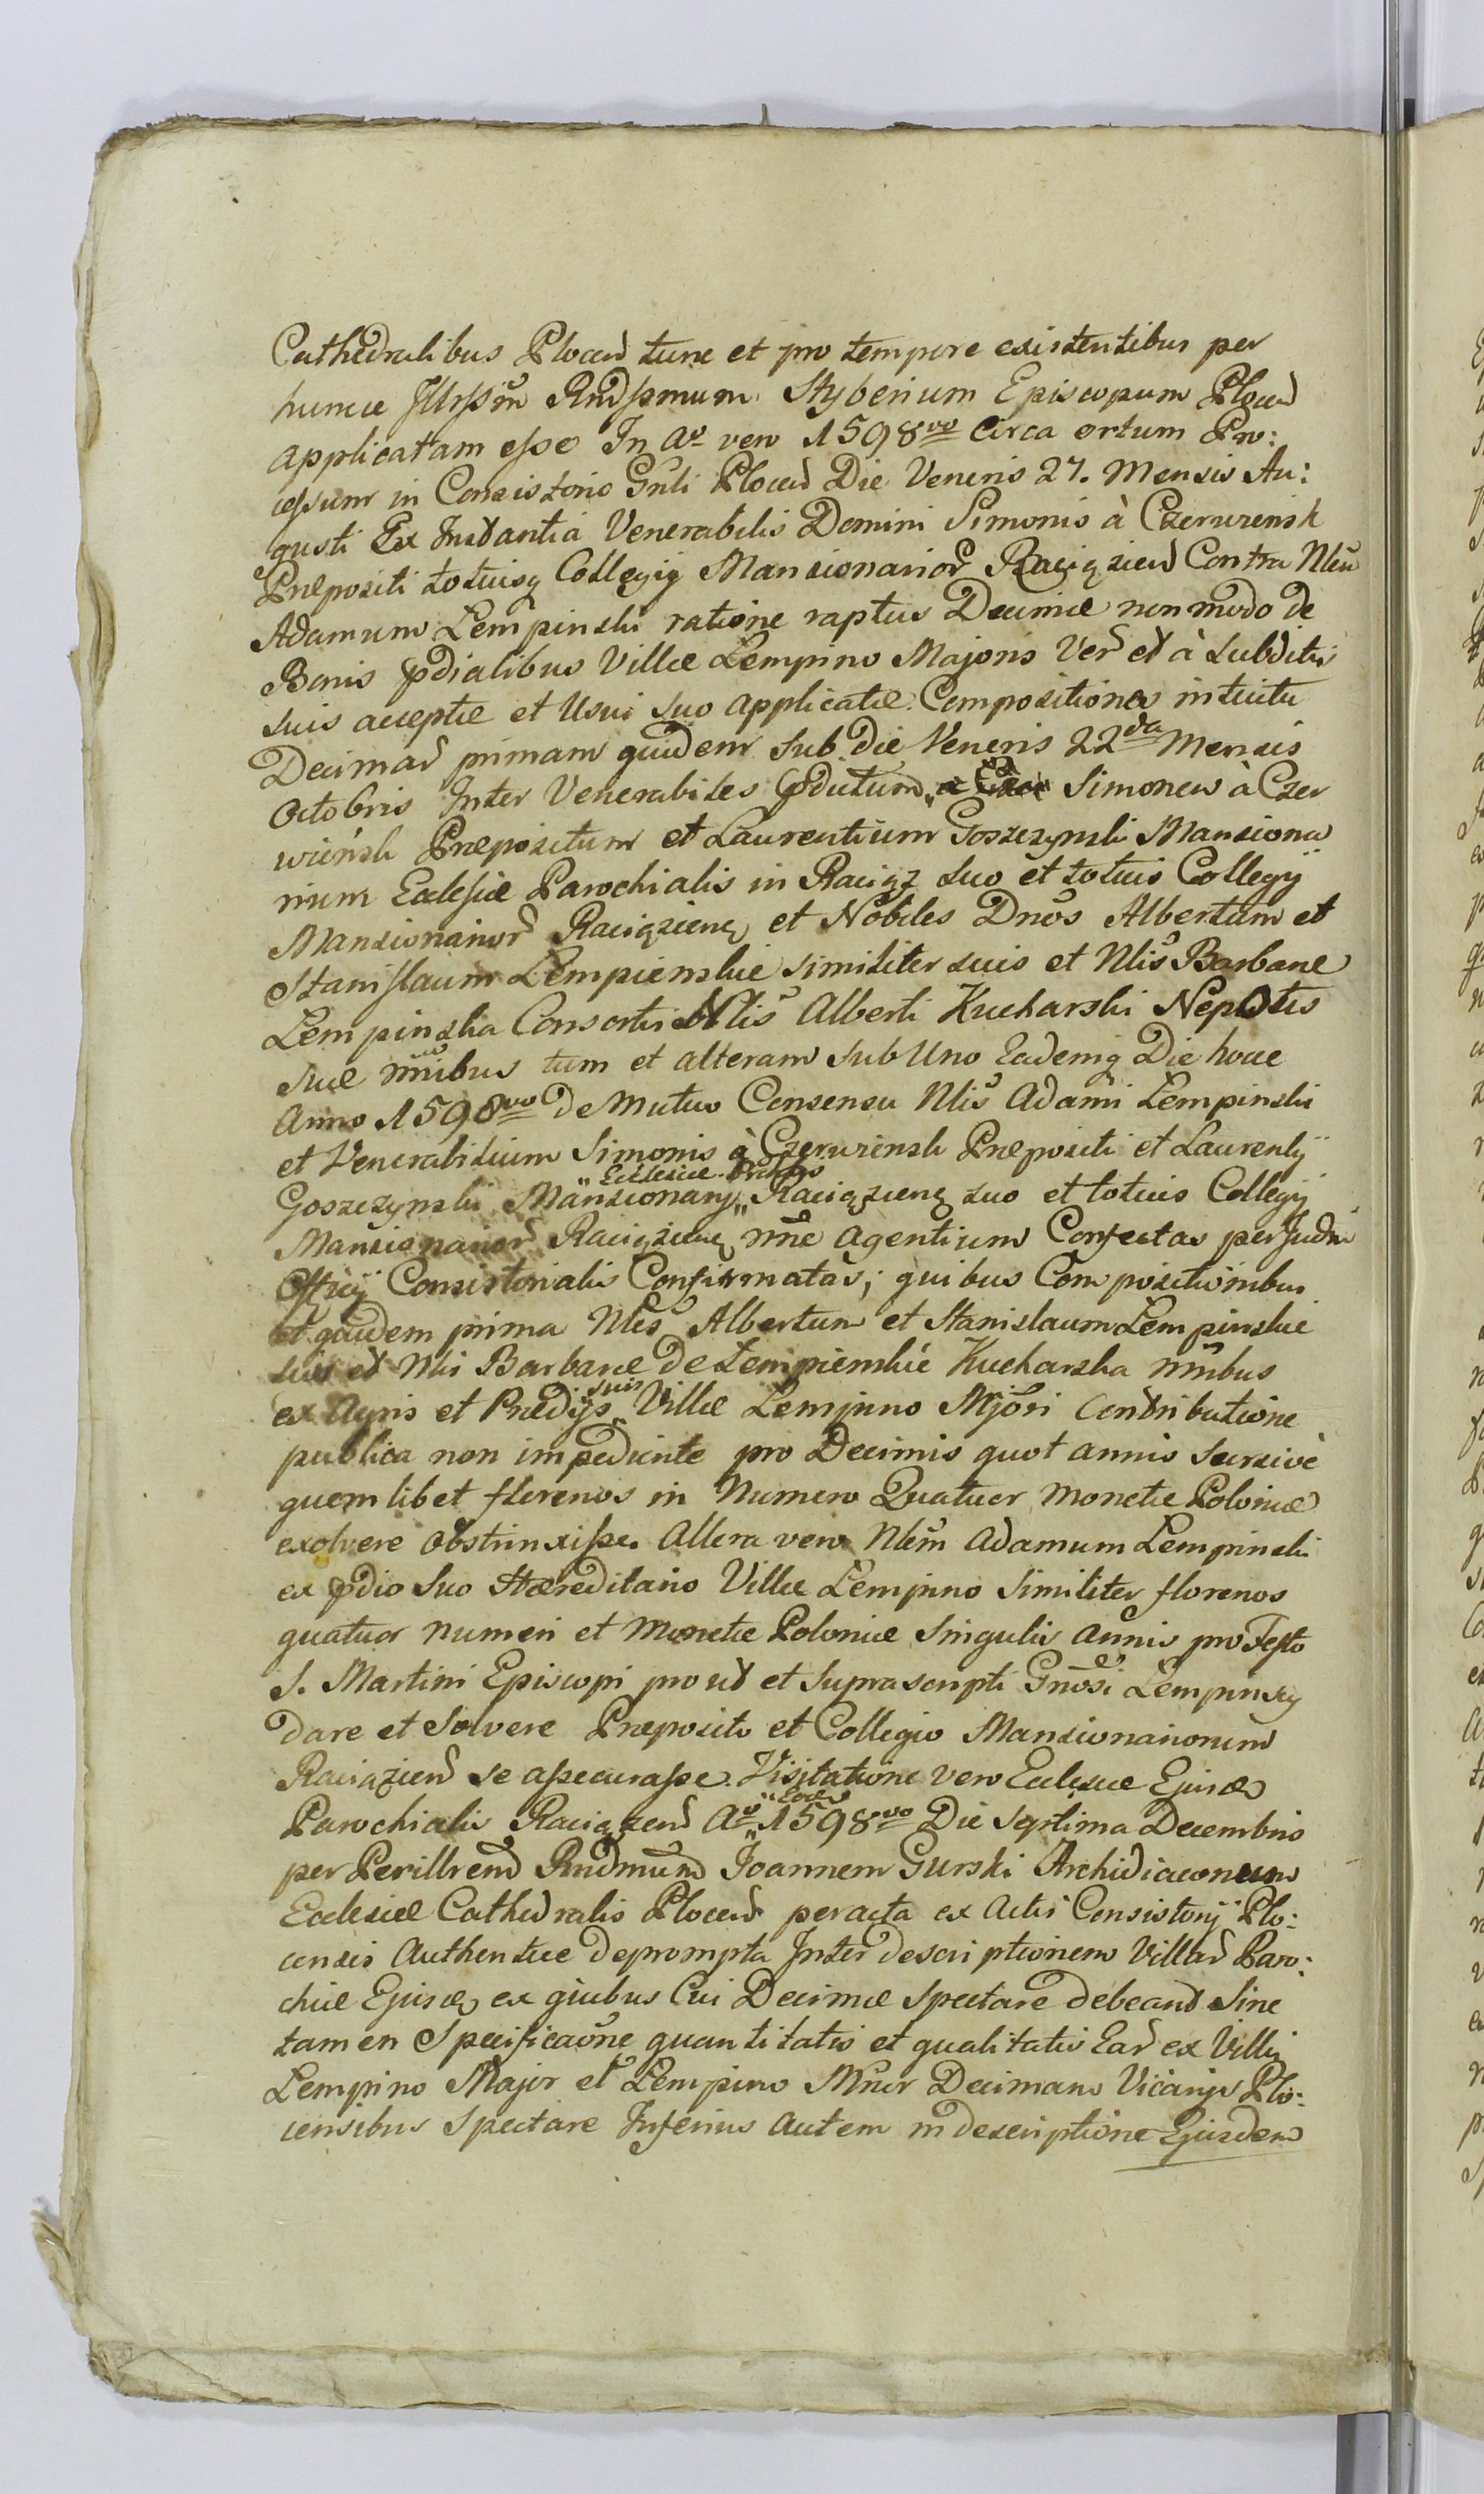 Cathedralibus Plocen tunc et pro tempore existentibus per
hunce Illrssm̄ Rndssmum Styberium Episcopum Plocen
applicatam esse In Ao vero 1598vo Circa ortum Pro:
cessum in Consistorio Gnli Plocen Die Veneris 27. Mensis Au:
gusti Ex Instantia Venerabilis Domini Simonis à Czerwensk
Præpositi totiusq Collegij Mansionarior Raciązien Contra Nlem
Adamum Lempinski ratione raptus Decimæ non modo de
Bonis pdialibus Villæ Lempino Majoris Ver et à Subditis
suis acceptæ et Usui suo applicatæ. Compositiones intuitu
Decimar primam quidem sub die Veneris 22da Mensis
Octobris Inter Venerabiles pdictum Simonem à Czer
wiensk Præpositum et Laurentium Goszczynski Mansiona
rium Ecclesiæ Parochialis in Raciąz suo et totius Collegij
Mansionarior Raciązienq et Nobiles Dnos Albertum et
Stanislaum Lempienskie similiter suis et Nlis Barbaræ
Lempinska Consortis Nlis Alberti Kucharski Nepotis
suæ nnibus tum et alteram sub Uno Eademq Die hocce
Anno 1598vo De Mutuo Consensu Nlis Adami Lempinski
et Venerabilium Simonis à Czerwinsk Præpositi et Laurentij
"Ecclesiæ Prchlis
Goszczynski Mansionarij" Raciązienq suo et totius Collegij
Mansionarior Raciązienq nne agentium Confectas per Judm
Officij Consistorialis Confirmatas; quibus Compositionibus
et quidem prima Nles Albertum et Stanislaum Lempinskie
suis et Nlis Barbaræ De Lempienskie Kucharska nnibus
suis
ex Agris et Prædijs Villæ Lempino Mjori Contributione
publica non impediente pro Decimis quot annis Seorsivè
quemlibet florenos in Numero Quatuor Monetæ Polonicæ
exolvere obstrinxisse. Altera vero Nlem Adamum Lempinski
ex pdio Suo Hæreditario Villæ Lempino Similiter florenos
quatuor numeri et Monetæ Polonicæ Singulis annis pro Festo
S. Martini Episcopi prout et suprascripti Gnosi Lempinscy
Dare et Solvere Præposito et Collegio Mansionariorum
Raciązien se assecurasse. Visitatione vero Ecclesiæ Ejusd
"Eod
Parochialis Raciązen Ao" 1598vo Die Septima Decembris
per Perillrem Rndmum Joannem Gurski Archidiaconum
Ecclesiæ Cathedralis Plocen peracta ex Actis Consistorij Plo:
censis Authentice deprompta Inter descriptionem Villar Paro:
chiæ Ejusd ex quibus Cui Decimæ Spectare debeant Sine
tamen Specificaone quantitatis et qualitatis Ear ex Villis
Lempino Major et Lempino Minor Decimam Vicarijs Plo:
censibus Spectare Inferius autem in descriptione Ejusdem